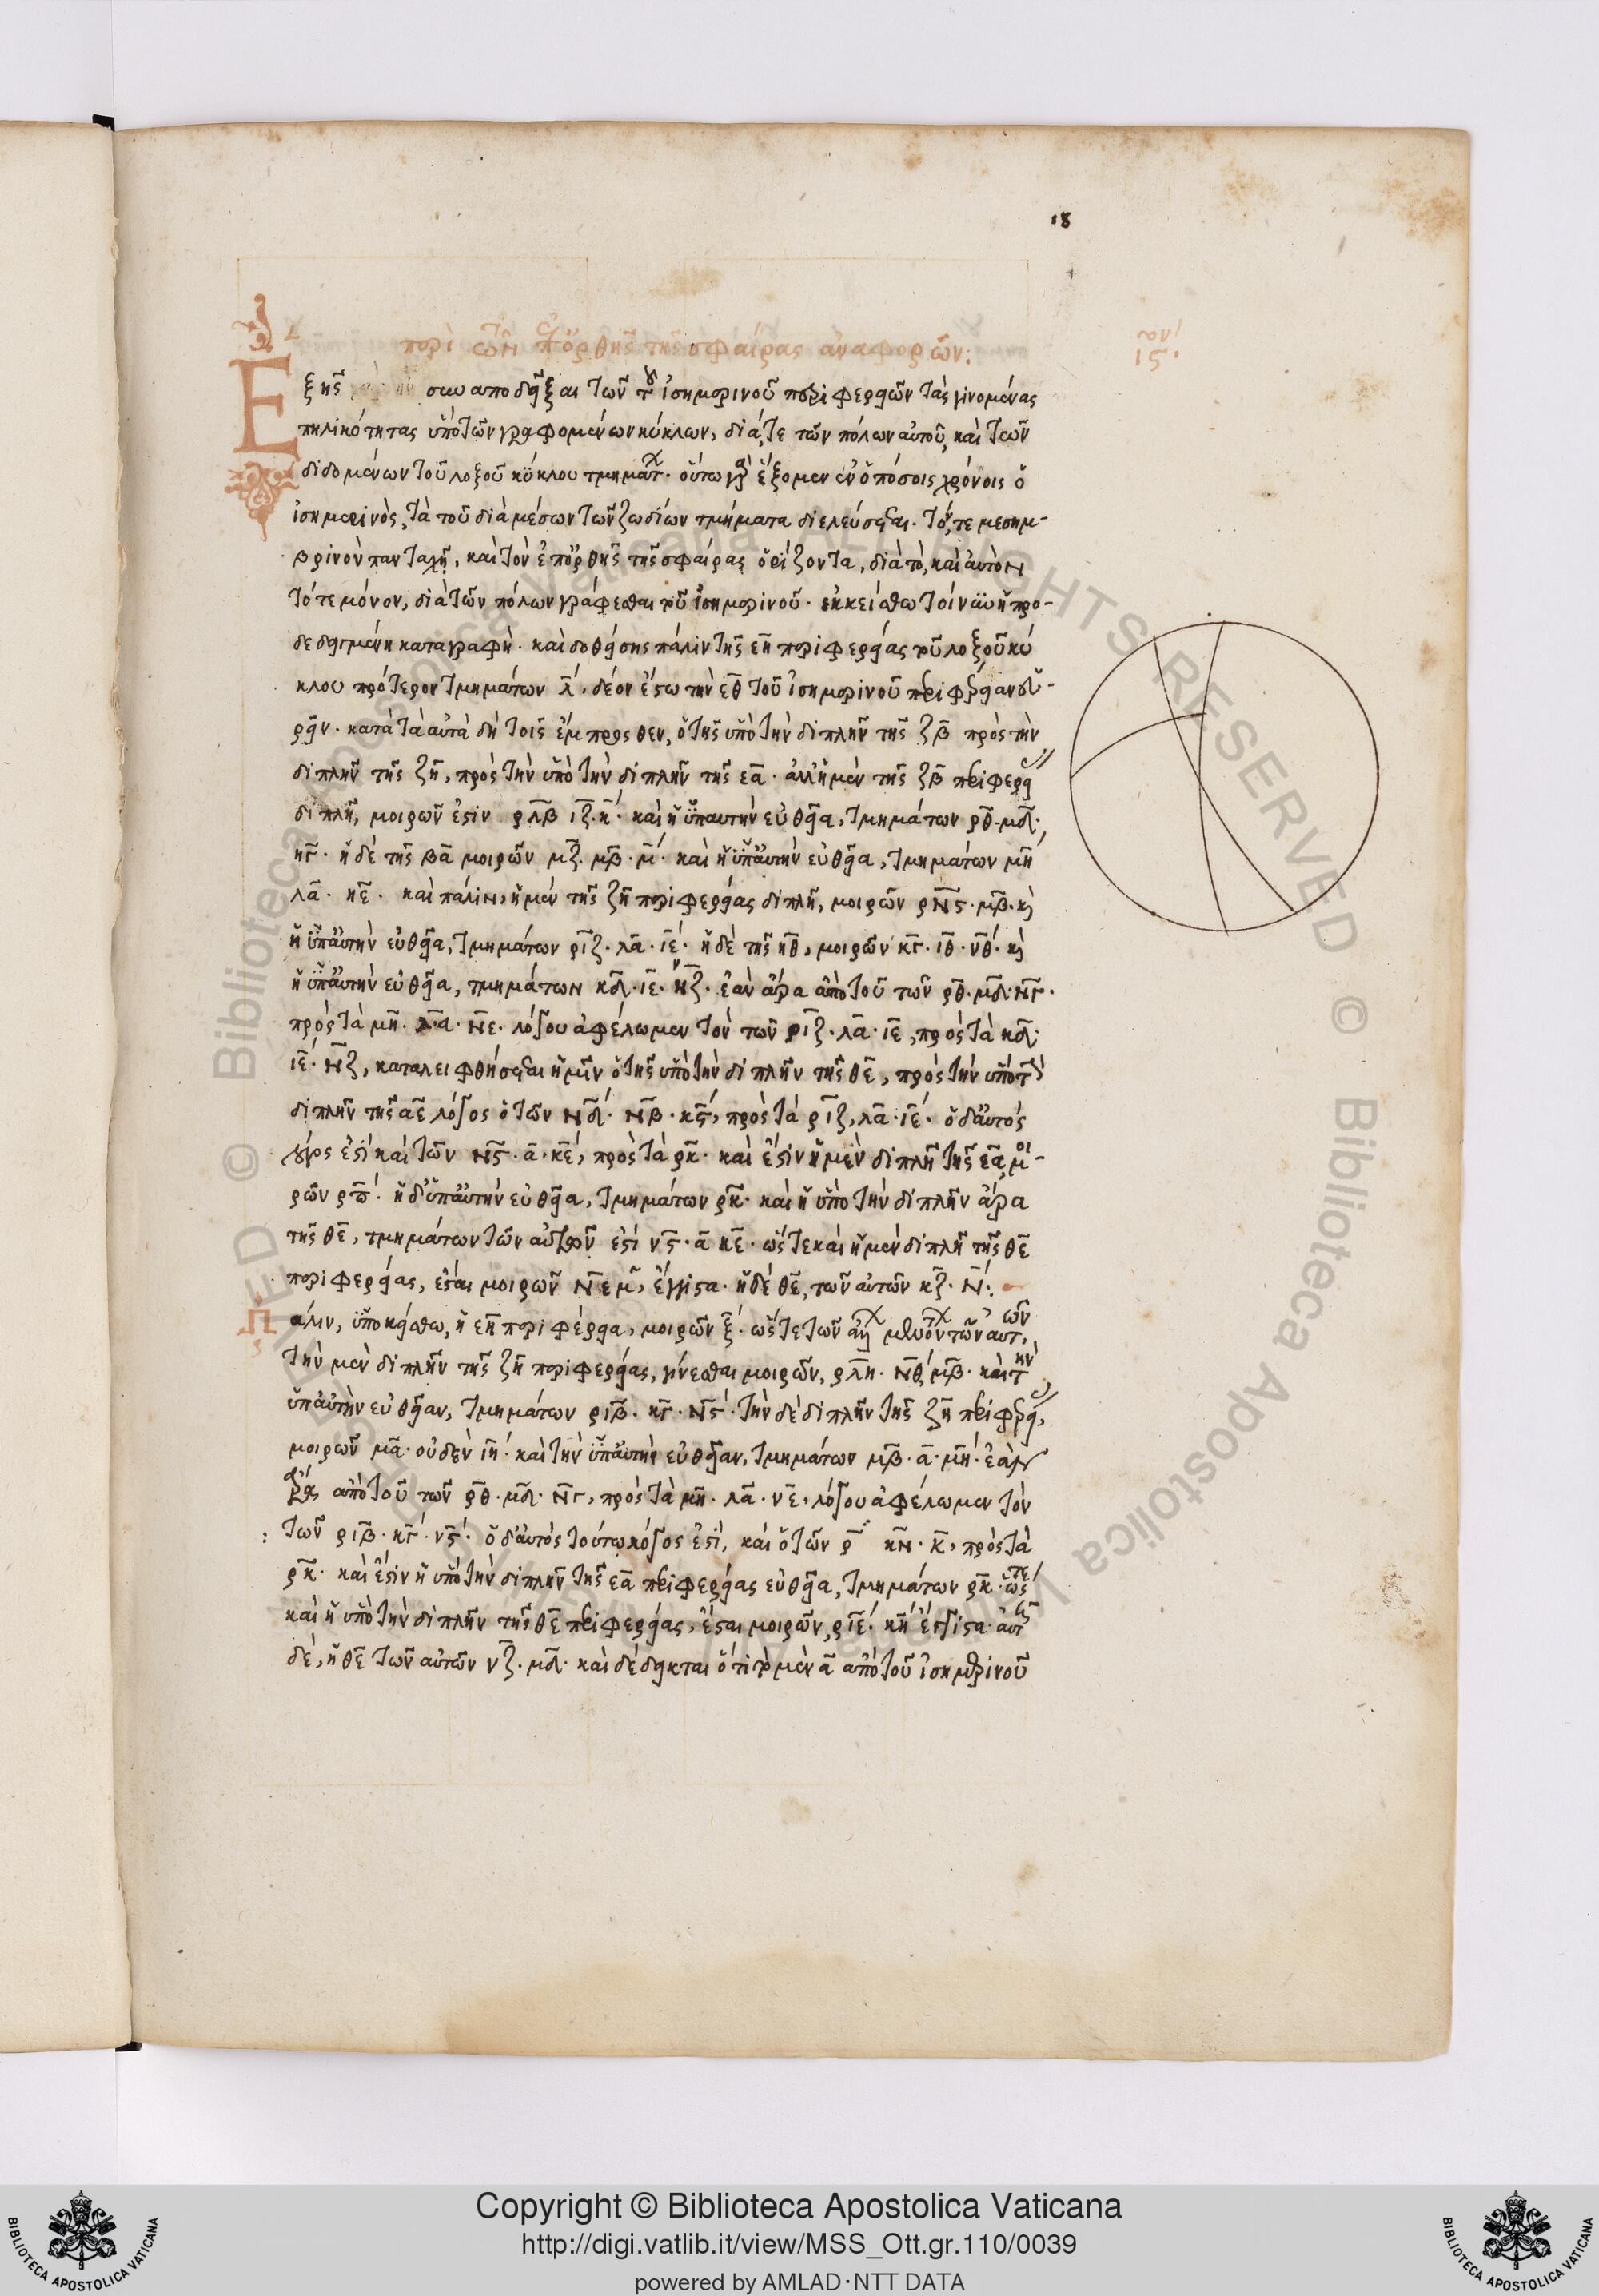 18
περὶ τῶν ἐπ' ὀρθῆς τῆς σφαίρας ἀναφορῶν:
ιϛ ον
Εξῆς συναποδεῖξαι τῶν τοῦ ἰσημερινοῦ περιφερειῶν τὰς γινομένας
πηλικότητας ὑπὸ τῶν γραφομένων κύκλων, διά τε τῶν πόλων αὐτοῦ, καὶ τῶν
διδομένων τοῦ λοξοῦ κύκλου τμημάτ. οὕτω γὰρ ἕξομεν ἐν ὁπόσοις χρόνοις ὁ
ἰσημερινὸς, τὰ τοῦ διὰ μέσων τῶν ζωδίων τμήματα διελεύσεται. τόν, τε μεσημ-
βρινὸν πανταχῆ, καὶ τὸν ἐπ' ὀρθῆς τῆς σφαίρας ὁρίζοντα, διὰ τὸ, καὶ αὐτὸν
τότε μόνον, διὰ τῶν πόλων γράφεσθαι τοῦ ἰσημερινοῦ. ἐκκείσθω τοίνυν ἡ προ-
δεδειγμένη καταγραφή. καὶ δοθείσης πάλιν τῆς εη περιφερείας τοῦ λοξοῦ κύ
κλου πρότερον τμημάτων λ, δέον ἔστω τὴν εθ τοῦ ἰσημερινοῦ περιφέρειαν εὑ-
ρεῖν. κατὰ τὰ αὐτὰ δὴ τοῖς ἔμπροσθεν, ὁ τῆς ὑπὸ τὴν διπλῆν τῆς ζβ πρὸς τὴν
διπλῆν τῆς ζη, πρὸς τὴν ὑπὸ τὴν διπλῆν τῆς εα. ἀλλ' ἡ μὲν τῆς ζβ περιφερεί
διπλῆ, μοιρῶν ἐστιν ρλβ ιζ. κ. καὶ ἡ ὑπ' αυτὴν εὐθεῖα, τμημάτων ρθ. μδ.
νγ. ἡ δὲ τῆς βα μοιρῶν μζ. μβ. μ. καὶ ἡ ὑπ' αὐτὴν εὐθεῖα, τμημάτων μη
λα. νε. καὶ πάλιν, ἡ μὲν τῆς ζη περιφερείας διπλῆ, μοιρῶν ρνϛ. μβ. κὶ
ἡ ὑπ' αὐτὴν εὐθεῖα, τμημάτων ριζ. λα. ιε. ἡ δὲ τῆς ηθ, μοιρῶν κγ. ιθ. νθ. κὶ
ἡ ὑπ' αὐτὴν εὐθεῖα, τμημάτων κδ. ιε. νζ. ἐὰν ἄρα ἀπὸ τοῦ τῶν ρθ. μδ. νγ.
πρὸς τὰ μη. λα. νε. λόγου ἀφέλωμεν τὸν τῶν ριζ. λα. ιε, πρὸς τὰ κδ.
ιε. νζ, καταλειφθήσεται ἡμῖν ὁ τῆς ὑπὸ τὴν διπλῆν τῆς θε, πρὸς τὴν ὑπὸ τ
διπλῆν τῆς αε λόγος ὁ τῶν νδ. νβ. κϛ, πρὸς τὰ ριζ, λα. ιε. ὁ δ' αὐτός
λόγος ἐστὶ καὶ τῶν νϛ. α. κε, πρὸς τὰ ρκ. καὶ ἔστιν ἡ μὲν διπλῆ τῆς εα, μοι-
ρῶν ρπ. ἡ δ' ὑπ' αὐτὴν εὐθεῖα, τμημάτων ρκ. καὶ ἡ ὑπὸ τὴν διπλῆν ἄρα
τῆς θε, τμημάτων τῶν αὐτῶν ἐστί νϛ. α κε. ὥστε καὶ ἡ μὲν διπλῆ τῆς θε
περιφερείας, ἔσται μοιρῶν νε μ, ἔγγιστα. ἡ δὲ θε, τῶν αὐτῶν κζ. ν:
Πάλιν, ὑποκείσθω, ἡ εη περιφέρεια, μοιρῶν ξ. ὥστε τῶν μενόντων αὐτῶν,
τὴν μὲν διπλῆν τῆς ζη περιφερείας, γίνεσθαι μοιρῶν, ρλη. νθ, μβ. καὶ τὴν
ὑπ' αὐτὴν εὐθεῖαν, τμημάτων ριβ. κγ. νϛ. τὴν δὲ διπλῆν τῆς ζη περιφερεί,
μοιρῶν μα. οὐδὲν ιη. καὶ τὴν ὑπ' αὐτὴν εὐθεῖαν, τμημάτων μβ. α. μη. ἐὰν
ἄρα ἀπὸ τοῦ τῶν ρθ. μδ. νγ, πρὸς τὰ μη. λα. νε, λόγου ἀφέλωμεν τὸν
τῶν ριβ. κγ. νϛ. ὁ δ' αὐτὸς τούτω λόγος ἐστὶ, καὶ ὁ τῶν ρ κν. κ, πρὸς τὰ
ρκ. καὶ ἔστιν ἡ ὑπὸ τὴν διπλῆν τῆς εα περιφερείας εὐθεῖα, τμημάτων ρκ. ὥστε
καὶ ἡ ὑπὸ τὴν διπλῆν τῆς θε περιφερείας, ἔσται μοιρῶν, ριε. κη ἔγγιστα. αὐτ
δὲ, ἡ θε τῶν αὐτῶν νζ. μδ. καὶ δέδεικται ὅτι τὸ μὲν α ἀπὸ τοῦ ἰσημερινοῦ
Copyright © Biblioteca Apostolica Vaticana
http://digi.vatlib.it/view/MSS_Ott.gr.110/0039
powered by AMLAD·NTT DATA
BIBLIOTECA APOSTOLICA VATICANA
BIBLIOTECA APOSTOLICA VATICANA